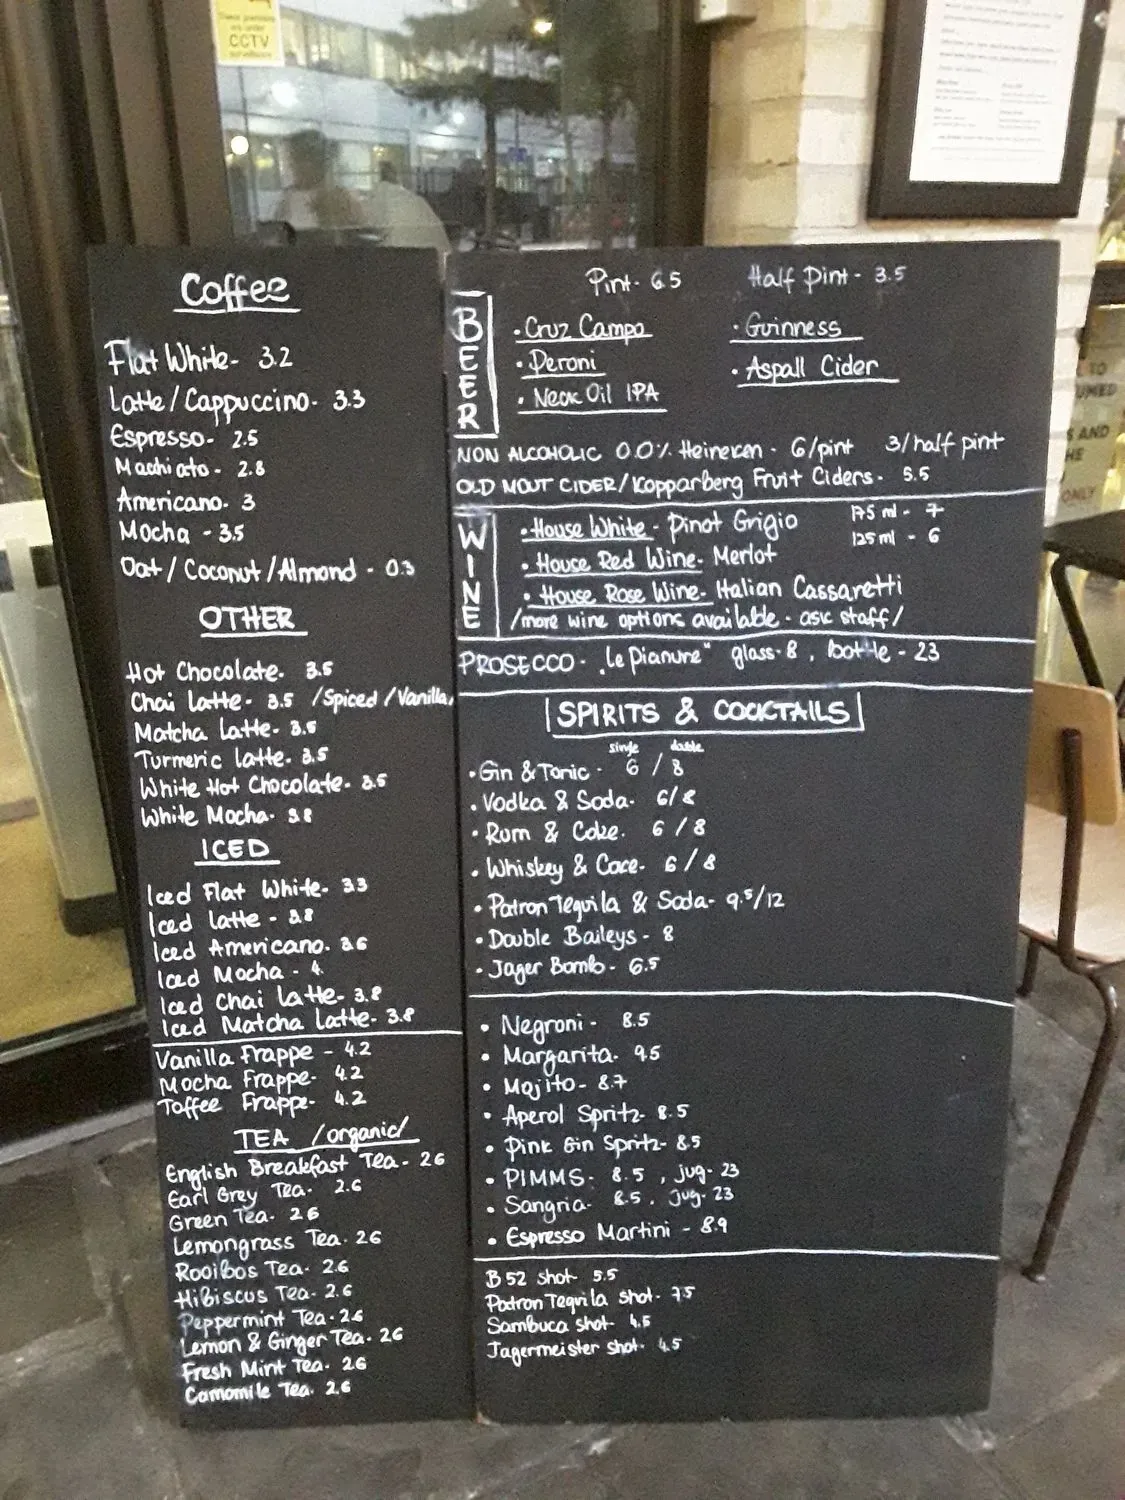 CCTV
Coffee
Flat White- 3.2
Latte/Cappuccino- 3.3
Espresso- 2.5
Machiato- 2.8
Americano- 3
Mocha - 3.5
Oat/Coconut/Almond - 0.3
OTHER
Hot Chocolate- 3.5
Chai Latte- 3.5 /Spiced/Vanilla,
Matcha Latte- 3.5
Turmeric Latte- 3.5
White Hot Chocolate- 3.5
White Mocha- 3.8
ICED
Iced Flat White- 3.3
Iced Latte - 3.8
Iced Americano- 3.6
Iced Mocha - 4
Iced Chai Latte- 3.8
Iced Matcha Latte- 3.8
Vanilla Frappe - 4.2
Mocha Frappe- 4.2
Toffee Frappe- 4.2
TEA /organic/
English Breakfast Tea- 2.6
Earl Grey Tea- 2.6
Green Tea- 2.6
Lemongrass Tea- 2.6
Rooibos Tea- 2.6
Hibiscus Tea- 2.6
Peppermint Tea- 2.6
Lemon & Ginger Tea- 2.6
Fresh Mint Tea- 2.6
Camomile Tea- 2.6
Pint- 6.5 Half Pint- 3.5
BEER
• Cruz Campo • Guinness
• Peroni • Aspall Cider
• Neck Oil IPA
NON ALCOHOLIC 0.0% Heineken - 6/pint 3/half pint
OLD MOUT CIDER/Kopparberg Fruit Ciders- 5.5
WINE
• House White - Pinot Grigio 175 ml - 7
• House Red Wine- Merlot 125 ml - 6
• House Rose Wine- Italian Cassaretti
/more wine options available - ask staff/
PROSECCO- "Le Pianure" glass-8, bottle - 23
SPIRITS & COCKTAILS
single double
• Gin & Tonic - 6 / 8
• Vodka & Soda- 6/8
• Rum & Coke. 6/8
• Whiskey & Coce- 6/8
• Patron Tequila & Soda- 9.5/12
• Double Baileys - 8
• Jager Bomb- 6.5
• Negroni- 8.5
• Margarita- 9.5
• Mojito- 8.7
• Aperol Spritz- 8.5
• Pink Gin Spritz- 8.5
• PIMMS- 8.5, jug- 23
• Sangria- 8.5, jug- 23
• Espresso Martini - 8.9
B52 shot- 5.5
Patron Tequila shot- 7.5
Sambuca shot- 4.5
Jagermeister shot- 4.5